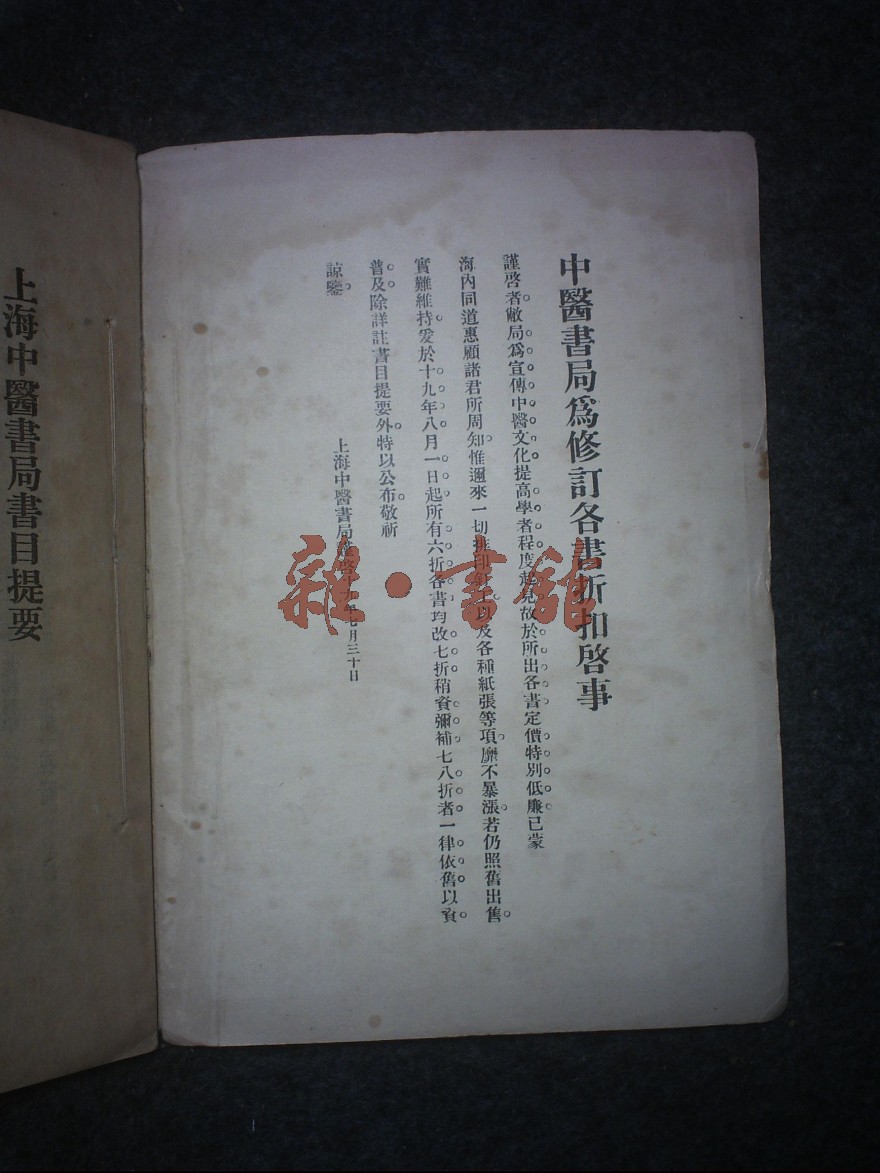 中醫書局爲修訂各書折扣啓事
謹啓者。敝局爲宣傳中醫文化提高學者程度起見故於所出各書定價特別低廉已蒙
海內同道惠顧諸君所周知。惟邇來一切排印訂工以及各種紙張等項。靡不暴漲。若仍照舊出售。
實難維持。爰於十九年八月一日起所有六折各書均改七折稍資彌補七八折者一律依舊以資
普及除詳註書目提要外。特以公布。敬祈
諒鑒。
上海中醫書局 年七月三十日
上海中醫書局書目提要
雜·書館